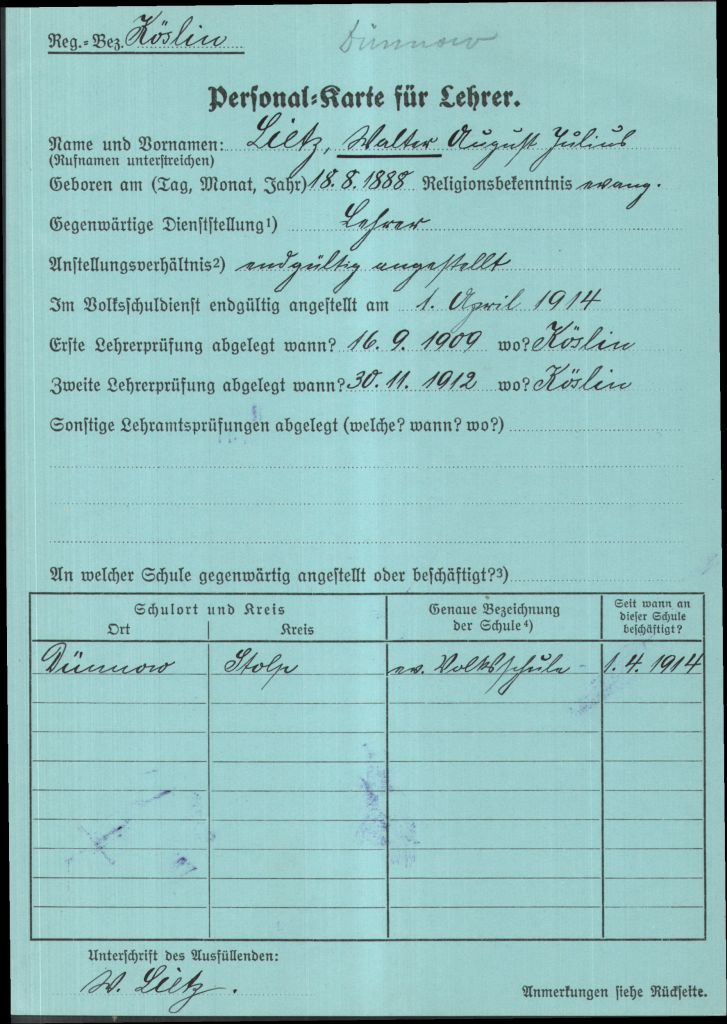 Reg.-Bez. Köslin
Dünnow
Personal-Karte für Lehrer.
Name und Vornamen: Lietz, Walter August Julius
(Rufnamen unterstreichen)
Geboren am (Tag, Monat, Jahr) 18. 8. 1888 Religionsbekenntnis evang.
Gegenwärtige Dienststellung¹) Lehrer
Anstellungsverhältnis²) endgültig angestellt
Im Volksschuldienst endgültig angestellt am 1. April 1914
Erste Lehrerprüfung abgelegt wann? 16. 9. 1909 wo? Köslin
Zweite Lehrerprüfung abgelegt wann? 30. 11. 1912 wo? Köslin
Sonstige Lehramtsprüfungen abgelegt (welche? wann? wo?)
An welcher Schule gegenwärtig angestellt oder beschäftigt?³)
Schulort und Kreis
Ort
Kreis
Genaue Bezeichnung
der Schule⁴)
Seit wann an
dieser Schule
beschäftigt?
Dünnow Stolp ev. Volksschule - 1. 4. 1914
Unterschrift des Ausfüllenden:
W. Lietz.
Anmerkungen siehe Rückseite.